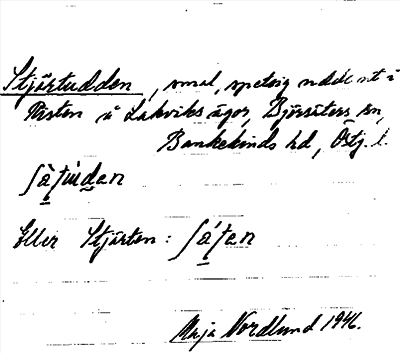 Stjärtudden, smal, spetsig udde
Risten å Lakviks ägor, Björsäters sn,
Bankekinds hd, Östg. l.
Eller Stjärten:
Maja Nordlund 1946.